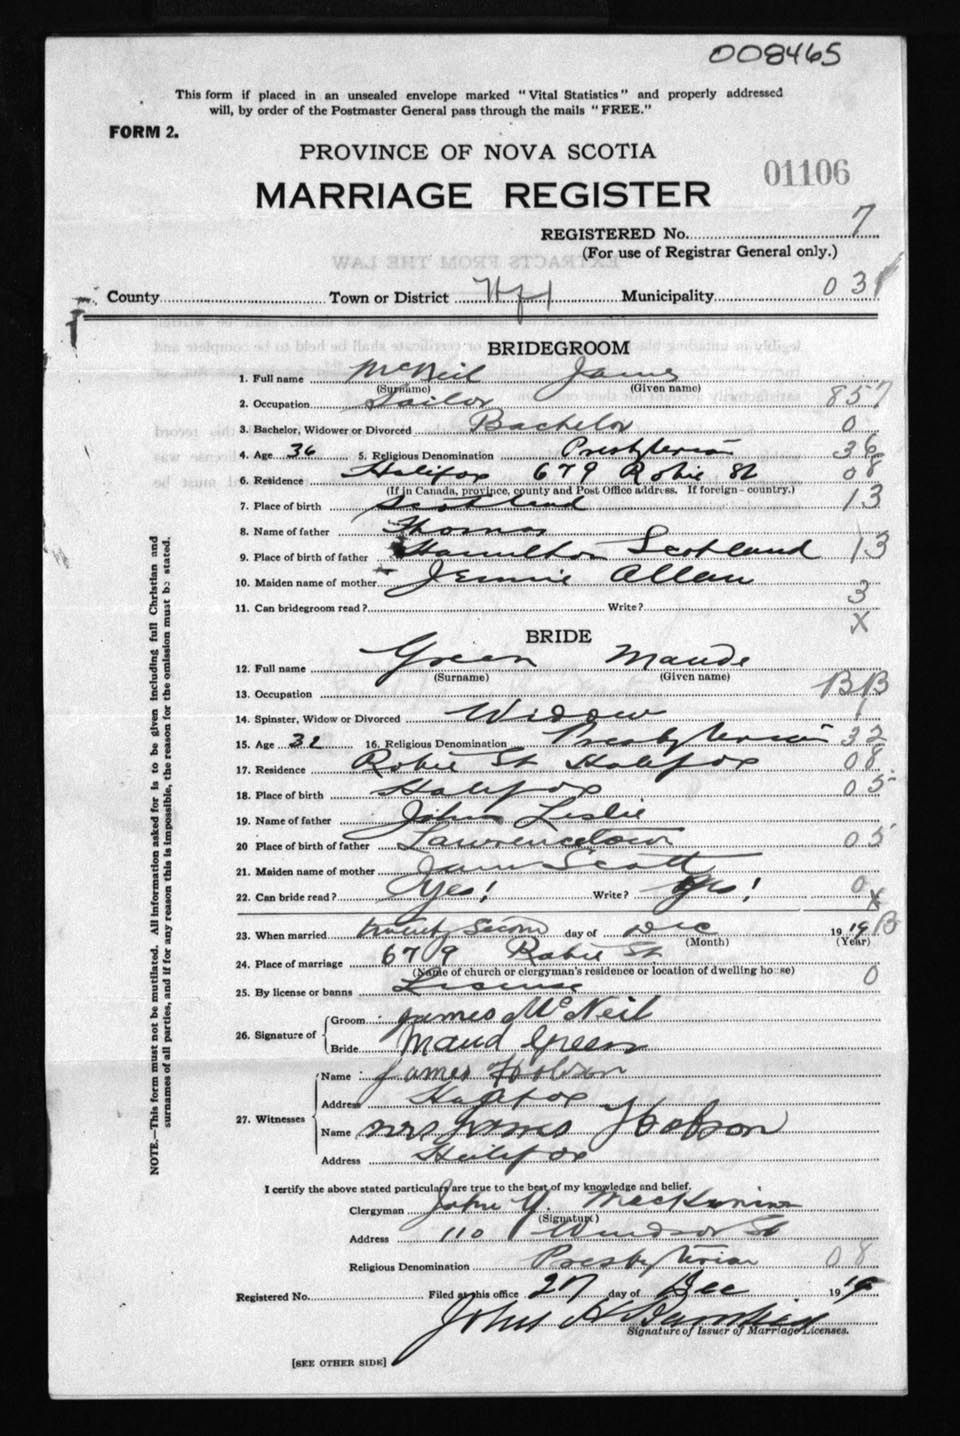 008465
This form if placed in an unsealed envelope marked "Vital Statistics" and properly addressed
will, by order of the Postmaster General pass through the mails "FREE."
FORM 2.
PROVINCE OF NOVA SCOTIA
01106
MARRIAGE REGISTER
REGISTERED No. 7
(For use of Registrar General only.)
County Town or District Hfx Municipality 031
BRIDEGROOM
1. Full name McNeil James
(Surname) (Given name)
2. Occupation Sailor 857
3. Bachelor, Widower or Divorced Bachelor 0
4. Age 36 5. Religious Denomination Presbyterian 36
6. Residence Halifax 679 Robie St 08
(If in Canada, province, county and Post Office address. If foreign - country.)
7. Place of birth Scotland 13
8. Name of father Thomas
9. Place of birth of father Hamilton Scotland 13
10. Maiden name of mother Jennie Allan
3
11. Can bridegroom read? Write?
X
BRIDE
12. Full name Green Maude
(Surname) (Given name)
13. Occupation BB
14. Spinster, Widow or Divorced Widow 1
15. Age 32 16. Religious Denomination Presbyterian 32
17. Residence Robie St Halifax 08
18. Place of birth Halifax 05
19. Name of father John Leslie
20 Place of birth of father Lawrencetown 05
21. Maiden name of mother Scott
22. Can bride read? Yes! Write? Yes! 0
X
23. When married twenty second day of Dec 1919 B
(Month) (Year)
24. Place of marriage 679 Robie St
(Name of church or clergyman's residence or location of dwelling house) 0
25. By license or banns License
26. Signature of Groom James McNeil
Bride Maud Green
27. Witnesses Name James Hobson
Address Halifax
Name Mrs James Hobson
Address Halifax
I certify the above stated particulars are true to the best of my knowledge and belief.
Clergyman John MacKinnon
(Signature)
Address 110 Windsor St
Religious Denomination Presbyterian 08
Registered No. Filed at this office 27 day of Dec 1919
John
Signature of Issuer of Marriage Licenses.
[SEE OTHER SIDE]
NOTE.—This form must not be mutilated. All information asked for is to be given including full Christian and
surnames of all parties, and if for any reason this is impossible, the reason for the omission must be stated.